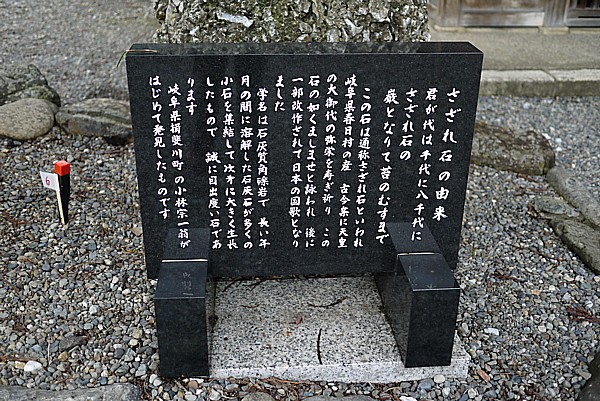 さざれ石の由来
君が代は千代に八千代に
さざれ石の
巌となりて苔のむすまで
この石は通称さざれ石といわれ
岐阜県春日村の産 古今集に天皇
の大御代の弥栄を寿ぎ祈り この
石の如くましませと詠われ 後に
一部改作されて日本の国歌となり
ました
学名は石灰質角礫岩で 長い年
月の間に溶解した石灰石が多くの
小石を集結して次才に大きく生長
したもので 誠に目出度い石であ
ります
岐阜県揖斐川町の小林宗一翁が
はじめて発見したものです
6